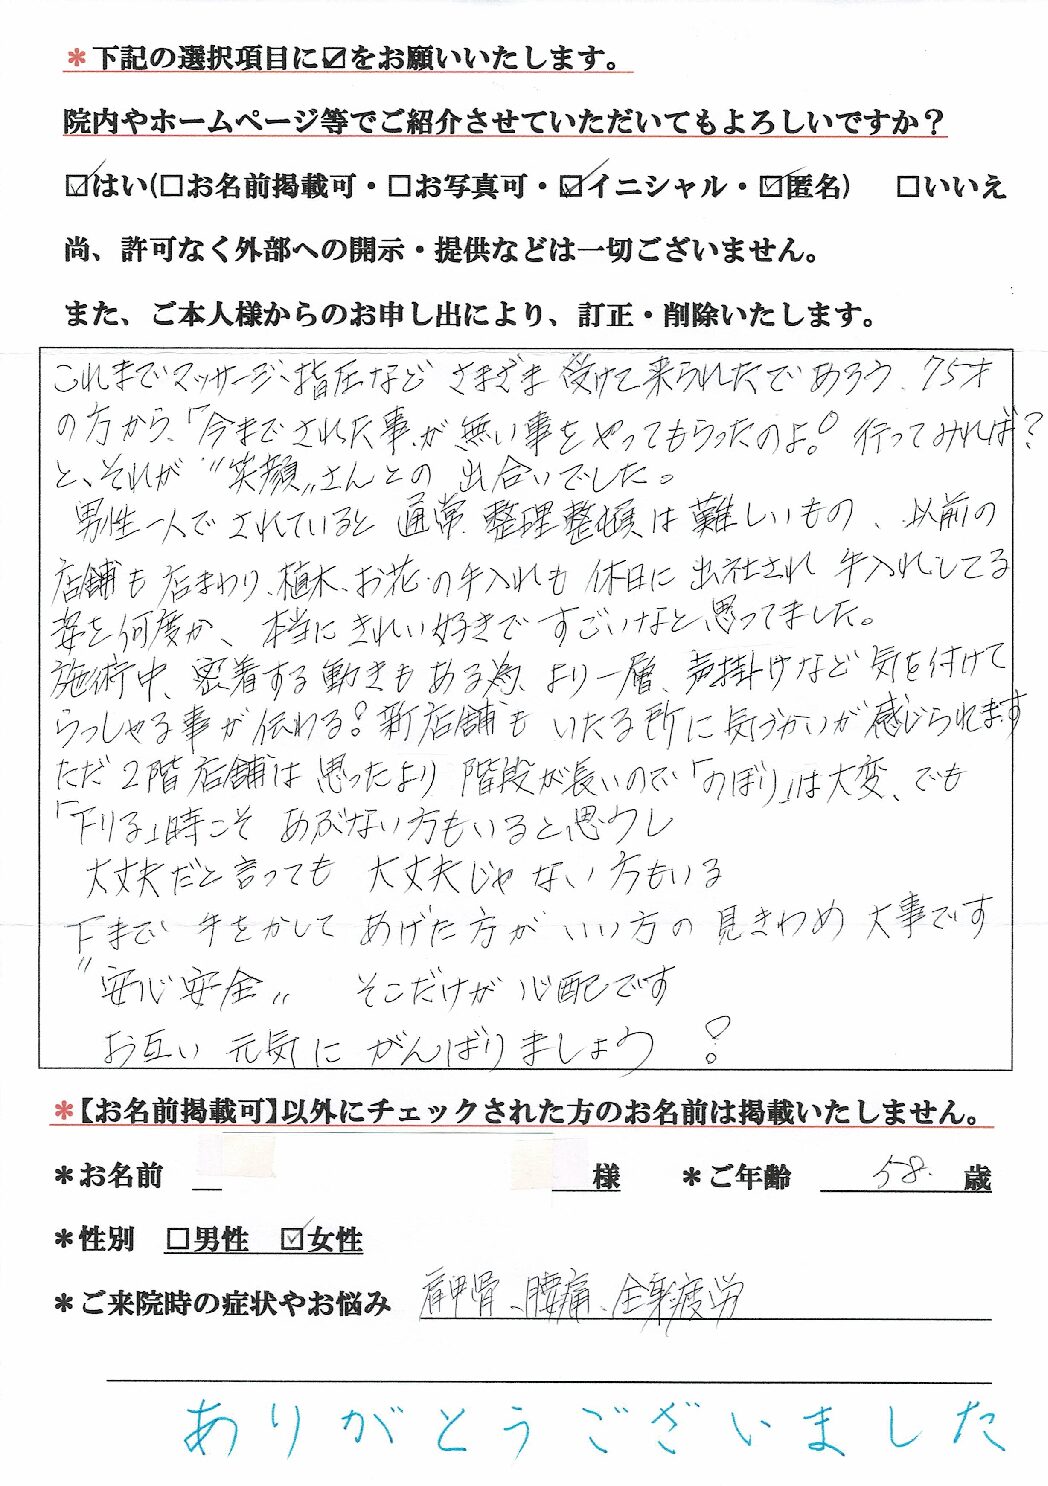 *下記の選択項目に☑をお願いいたします。
院内やホームページ等でご紹介させていただいてもよろしいですか？
☑はい(□お名前掲載可・□お写真可・☑イニシャル・☑匿名)　□いいえ
尚、許可なく外部への開示・提供などは一切ございません。
また、ご本人様からのお申し出により、訂正・削除いたします。
これまでマッサージ、指圧など さまざま 受けて来られたであろう、75才
の方から、「今までされた事が無い事をやってもらったのよ。行ってみれば?
と、それが〝笑顔〟さんとの 出合いでした。
男性一人でされていると 通常 整理整頓は難しいもの、以前の
店舗も 店まわり、植木、お花の手入れも 休日に 出社され 手入れしてる
姿を何度か、本当に きれい好きで すごいなと思ってました。
施術中、密着する動きもある為、より一層、声掛けなど気を付けて
らっしゃる事が伝わる! 新店舗も いたる所に 気づかいが感じられます
ただ2階店舗は 思ったより 階段が長いので「のぼり」は大変、でも
「下りる」時こそ あぶない方もいると思うし
大丈夫だと言っても 大丈夫じゃない方もいる
下まで 手をかして あげた方が いい方の 見きわめ 大事です
〝安心安全〟 そこだけが心配です
お互い 元気に がんばりましょう !
*【お名前掲載可】以外にチェックされた方のお名前は掲載いたしません。
*お名前　様　*ご年齢　58.　歳
*性別　□男性　☑女性
*ご来院時の症状やお悩み　肩甲骨、腰痛、全身疲労
ありがとうございました